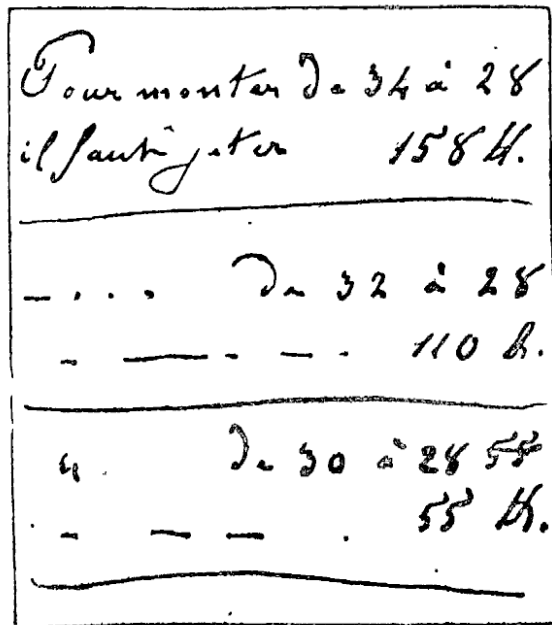 Pour monter de 34 à 28
il faut jeter 158 k.
— . . . de 32 à 28
- — - - . 110 k.
" de 30 à 28 55
- — — . 55 k.